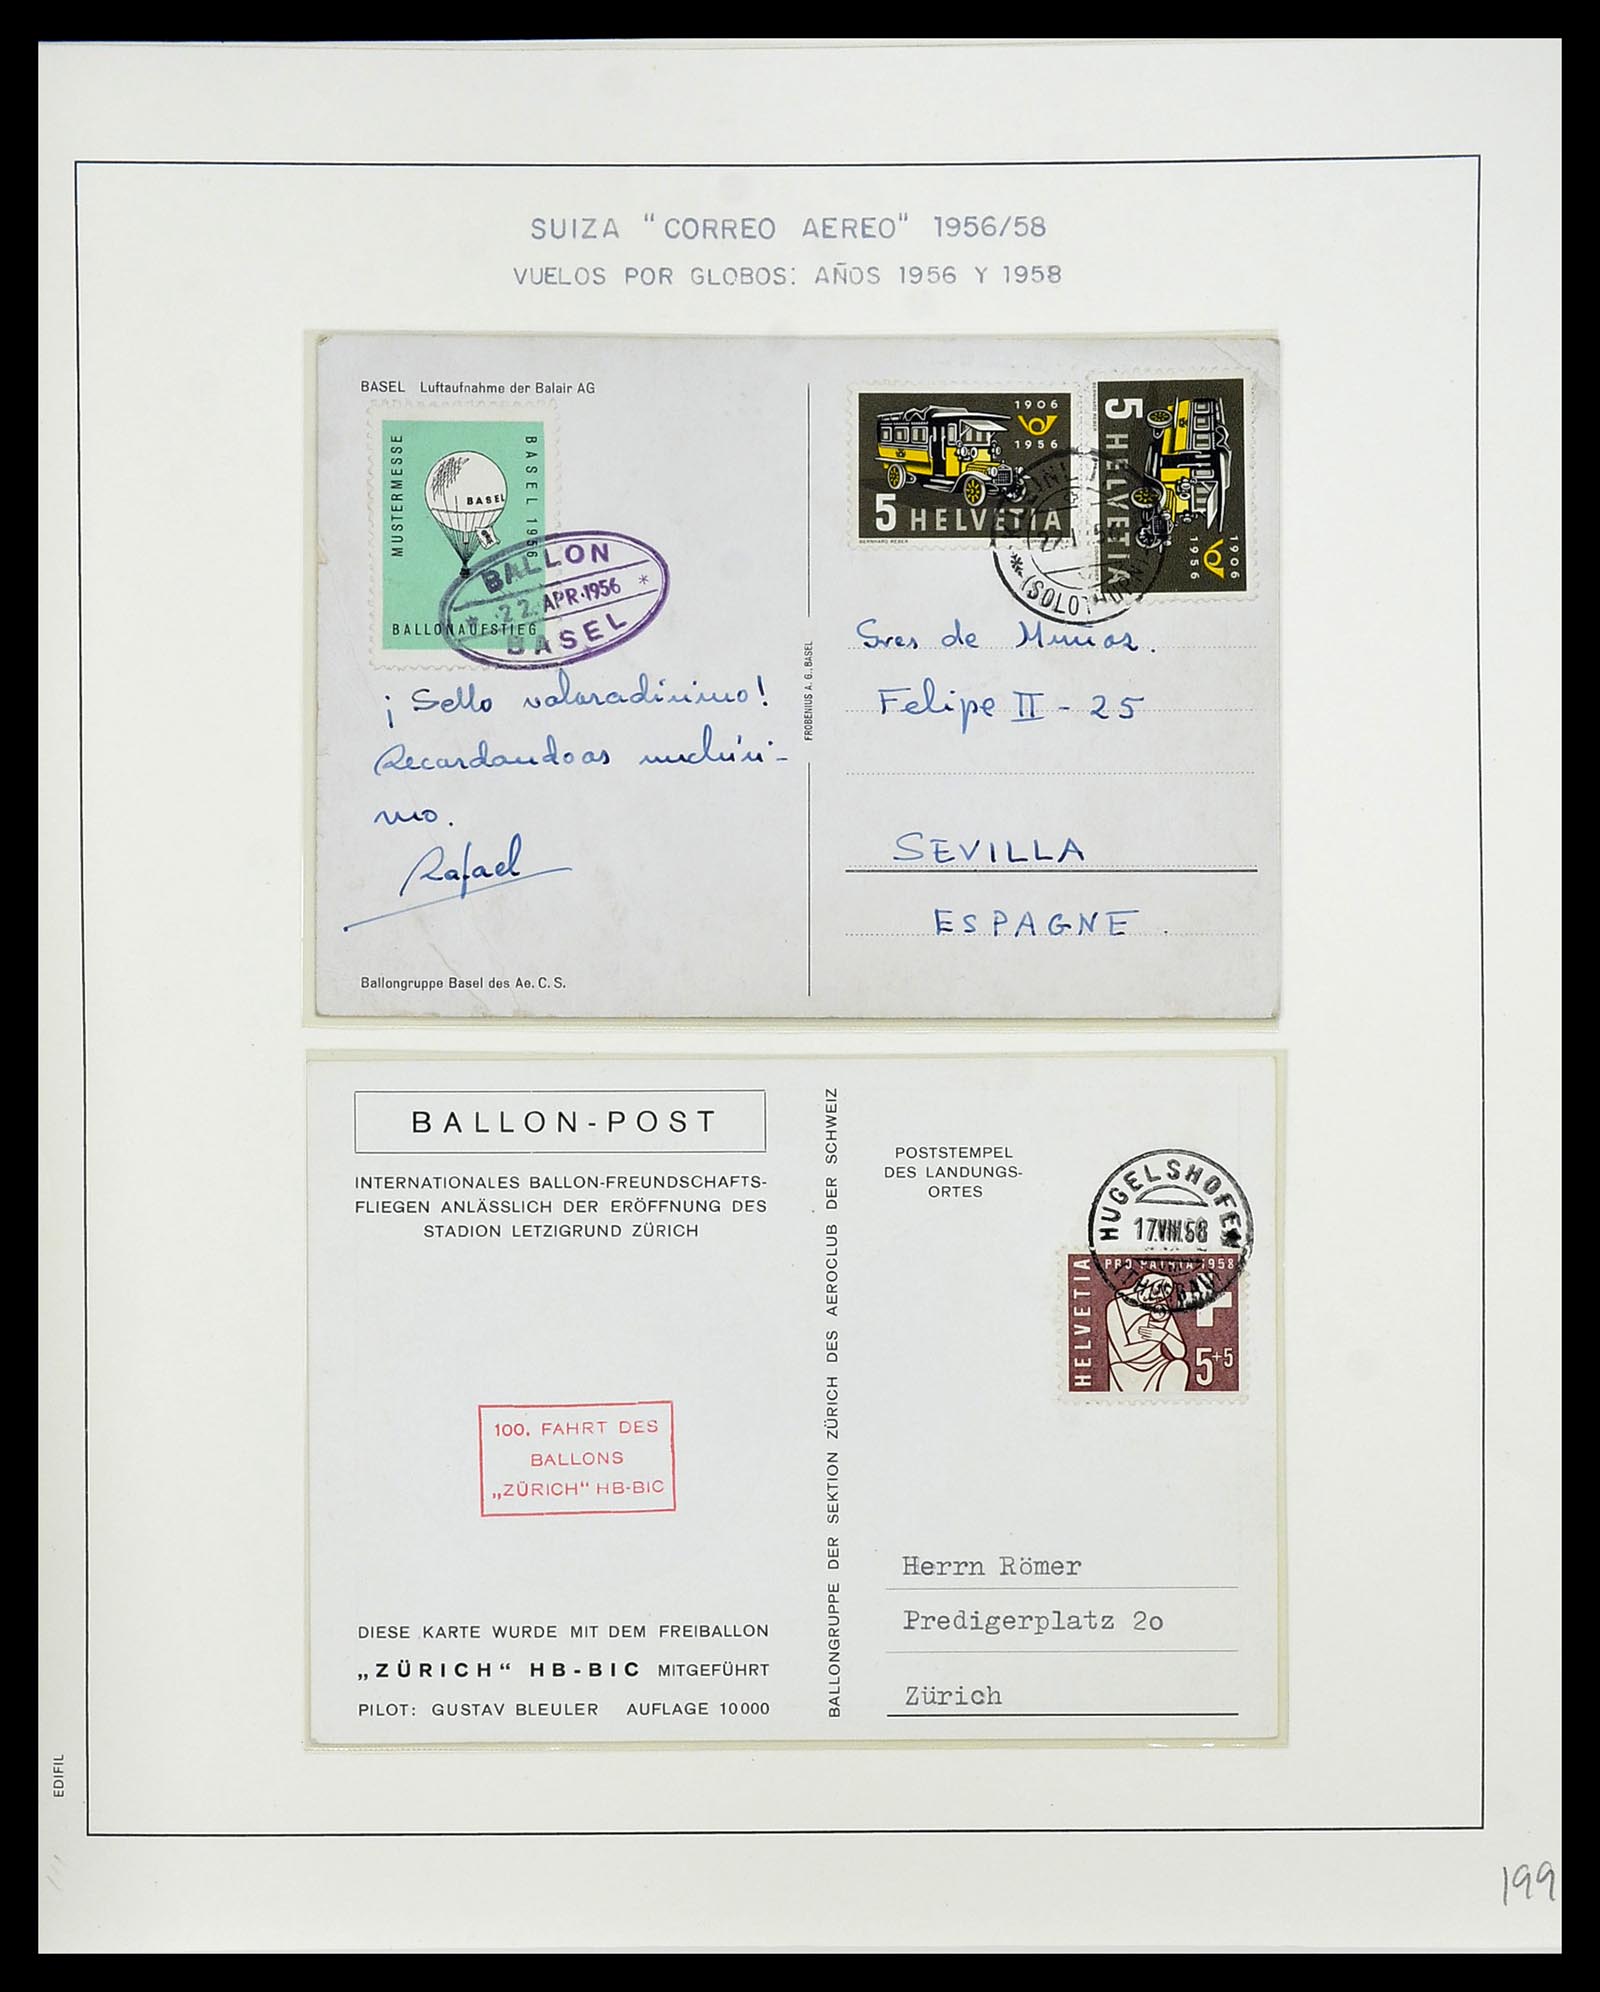 SUIZA "CORREO AEREO" 1956/58
VUELOS POR GLOBOS: AÑOS 1956 Y 1958
BASEL Luftaufnahme der Balair AG
MUSTERMESSE
BASEL 1956
BASEL
BALLONAUFSTIEG
BALLON
22. APR. 1956
BASEL
¡Sello valoradísimo!
Recordandoos muchísi-
mo.
Rafael
Ballongruppe Basel des Ae. C. S.
FROBENIUS A. G., BASEL
1906
1956
5 HELVETIA
BERNHARD REBER
5 HELVETIA
1906
1956
(SOLOTHURN)
Sres de Muñoz.
Felipe II - 25
SEVILLA
ESPAGNE.
BALLON-POST
INTERNATIONALES BALLON-FREUNDSCHAFTS-
FLIEGEN ANLÄSSLICH DER ERÖFFNUNG DES
STADION LETZIGRUND ZÜRICH
100. FAHRT DES
BALLONS
„ZÜRICH“ HB-BIC
DIESE KARTE WURDE MIT DEM FREIBALLON
„ZÜRICH“ HB-BIC MITGEFÜHRT
PILOT: GUSTAV BLEULER AUFLAGE 10000
BALLONGRUPPE DER SEKTION ZÜRICH DES AEROCLUB DER SCHWEIZ
POSTSTEMPEL
DES LANDUNGS-
ORTES
HUGELSHOFEN
17.VIII.58
(THURGAU)
PRO PATRIA 1958
HELVETIA
5+5
Herrn Römer
Predigerplatz 2o
Zürich
EDIFIL
199